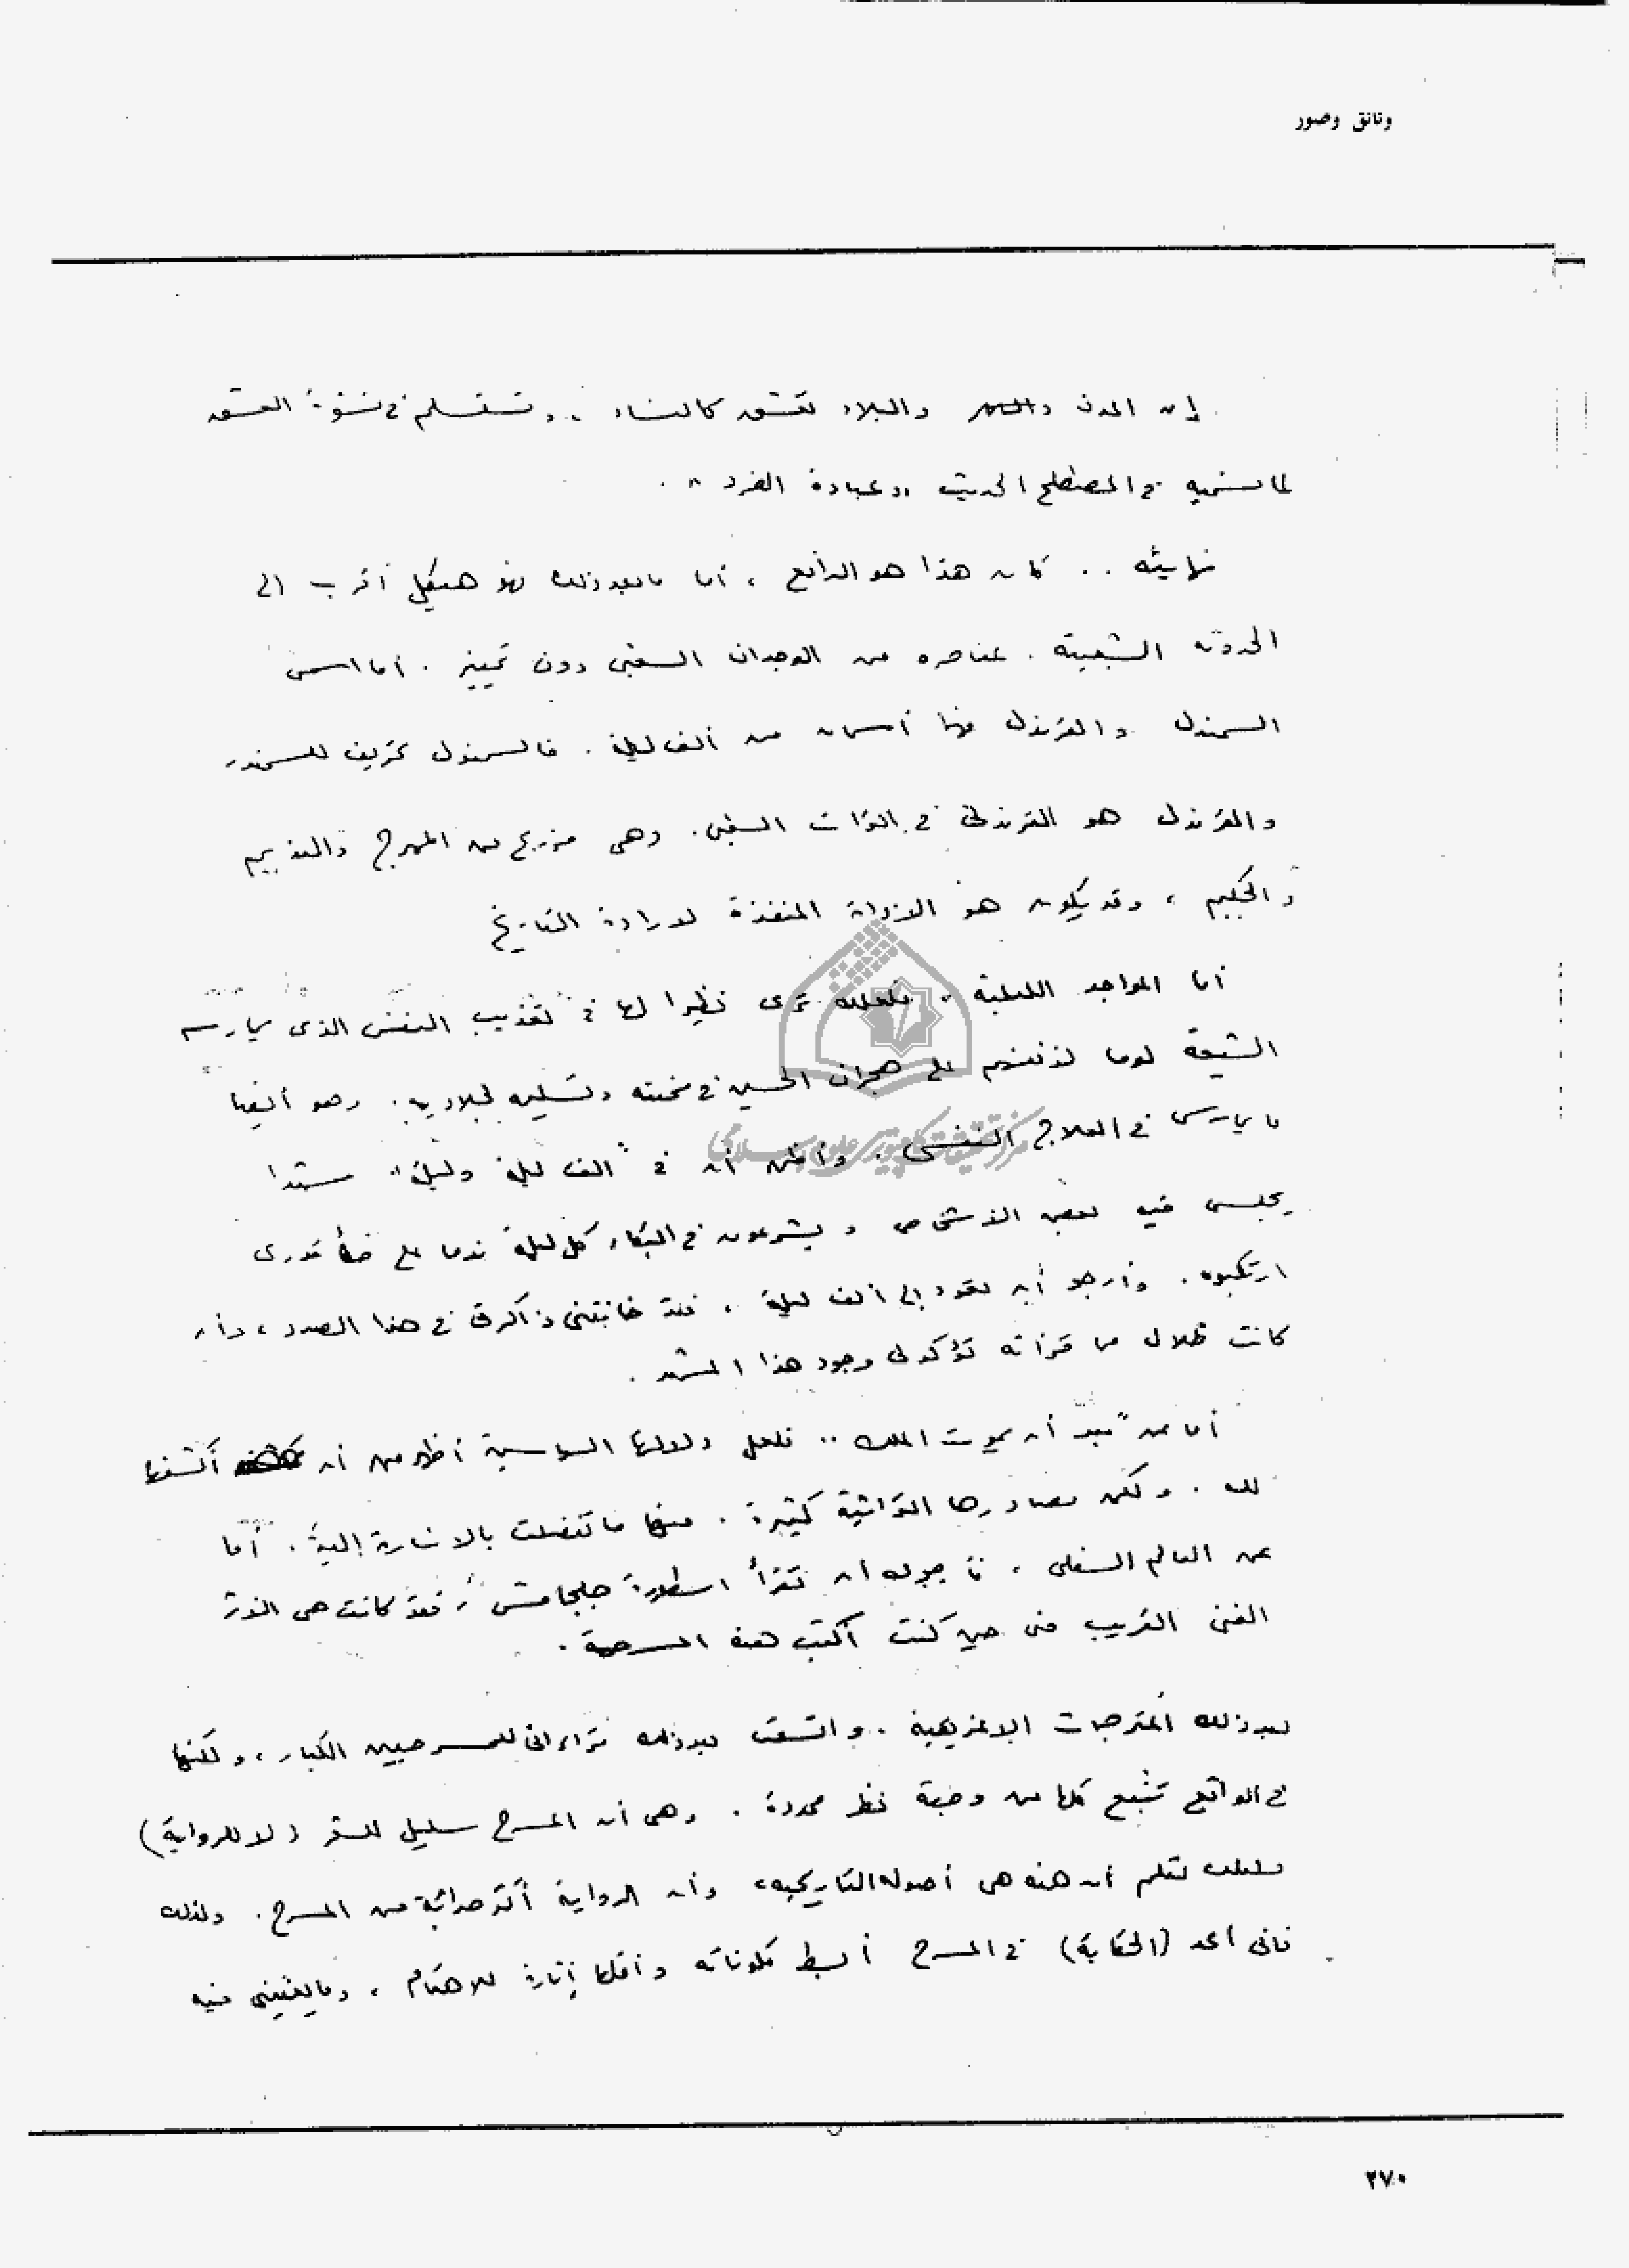 وثائق وصور
إن المدن والبلاد تعشق كالنساء .. وتستسلم في نشوة العشق
لما نسميه في المصطلح الحديث "عبادة الفرد" .
كان هذا هو الواقع ، أما ما بعد ذلك فهو هيكل أقرب الى
الحدوتة الشعبية . عناصره من الوجدان الشعبي دون تمييز . أما اسمى
السمندل والقرندل فهما أسمان من ألف ليلة . فالسمندل تحريف للسمندر
والقرندل هو القرندلى في التراث الشعبى . وهى مزيج من المهرج والنديم
والحكيم ، وقد يكون هو الاداة المنفذة لارادة التاريخ
أما المواجد الليلية ، فلعلك ترى نظيرا لها في تعذيب النفس الذى يمارسه
الشيعة لوما لأنفسهم على هجران الحسين في محنته وتسليمه لجلاديه . وهو أيضا
ما يمارس في العلاج النفسى . وأظن أن في "ألف ليلة وليلة" مشهدا
يجلس فيه بعض الاشخاص ويشرعون في البكاء كل ليلة ندما على خطأ قدرى
ارتكبوه . وأرجو أن تعود إلى ألف ليلة ، فقد خانتنى ذاكرتى في هذا الصدد ، وأن
كانت ظلال مما قرأته تؤكد لى وجود هذا المشهد .
أما عن "بعد أن يموت الملك" .. فلعل دلالتها السياسية أظهر من أن أكشفها
لك . ولكن مصادرها التراثية كثيرة . منها ما تفضلت بالاشارة إليه . أما
عن العالم السفلى ، فأرجوك أن تقرأ اسطورة جلجامش ، فقد كانت هى
الفنى القريب منى حين كنت أكتب هذه المسرحية .
بعد ذلك المترجمات الانجليزية . واتسعت بعد ذلك قراءاتى للمسرحيين الكبار ، ولكنها
في الواقع تنبع كلها من وجهة نظر محددة . وهى أن المسرح سليل للشعر (لا للرواية)
ولعلك تعلم أن هذه هى أصوله التاريخية وأن الرواية أكثر حداثة من المسرح . ولذلك
فانى أعد (الحكاية) في المسرح أبسط مكوناته وأقلها إثارة للاهتمام ، وما يعنينى فيه
٢٧٠